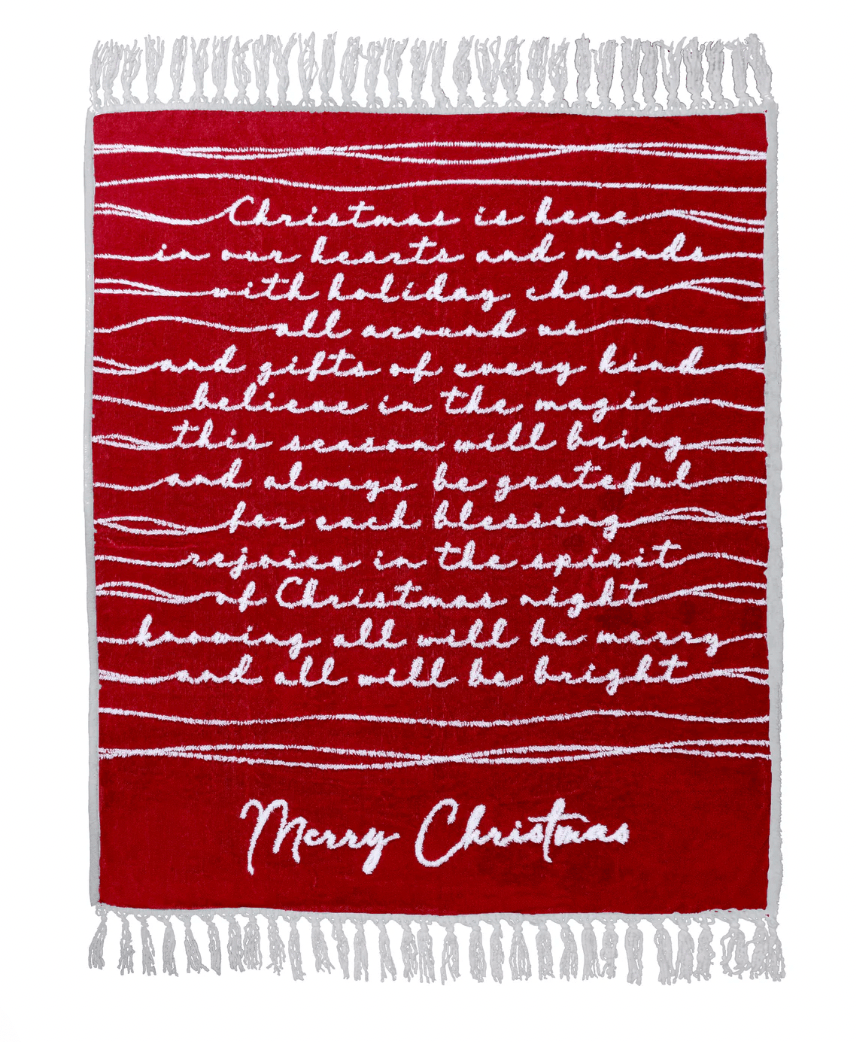 Christmas is here
in our hearts and minds
with holiday cheer
all around us
and gifts of every kind
believe in the magic
this season will bring
and always be grateful
for each blessing
rejoice in the spirit
of Christmas night
knowing all will be merry
and all will be bright
Merry Christmas